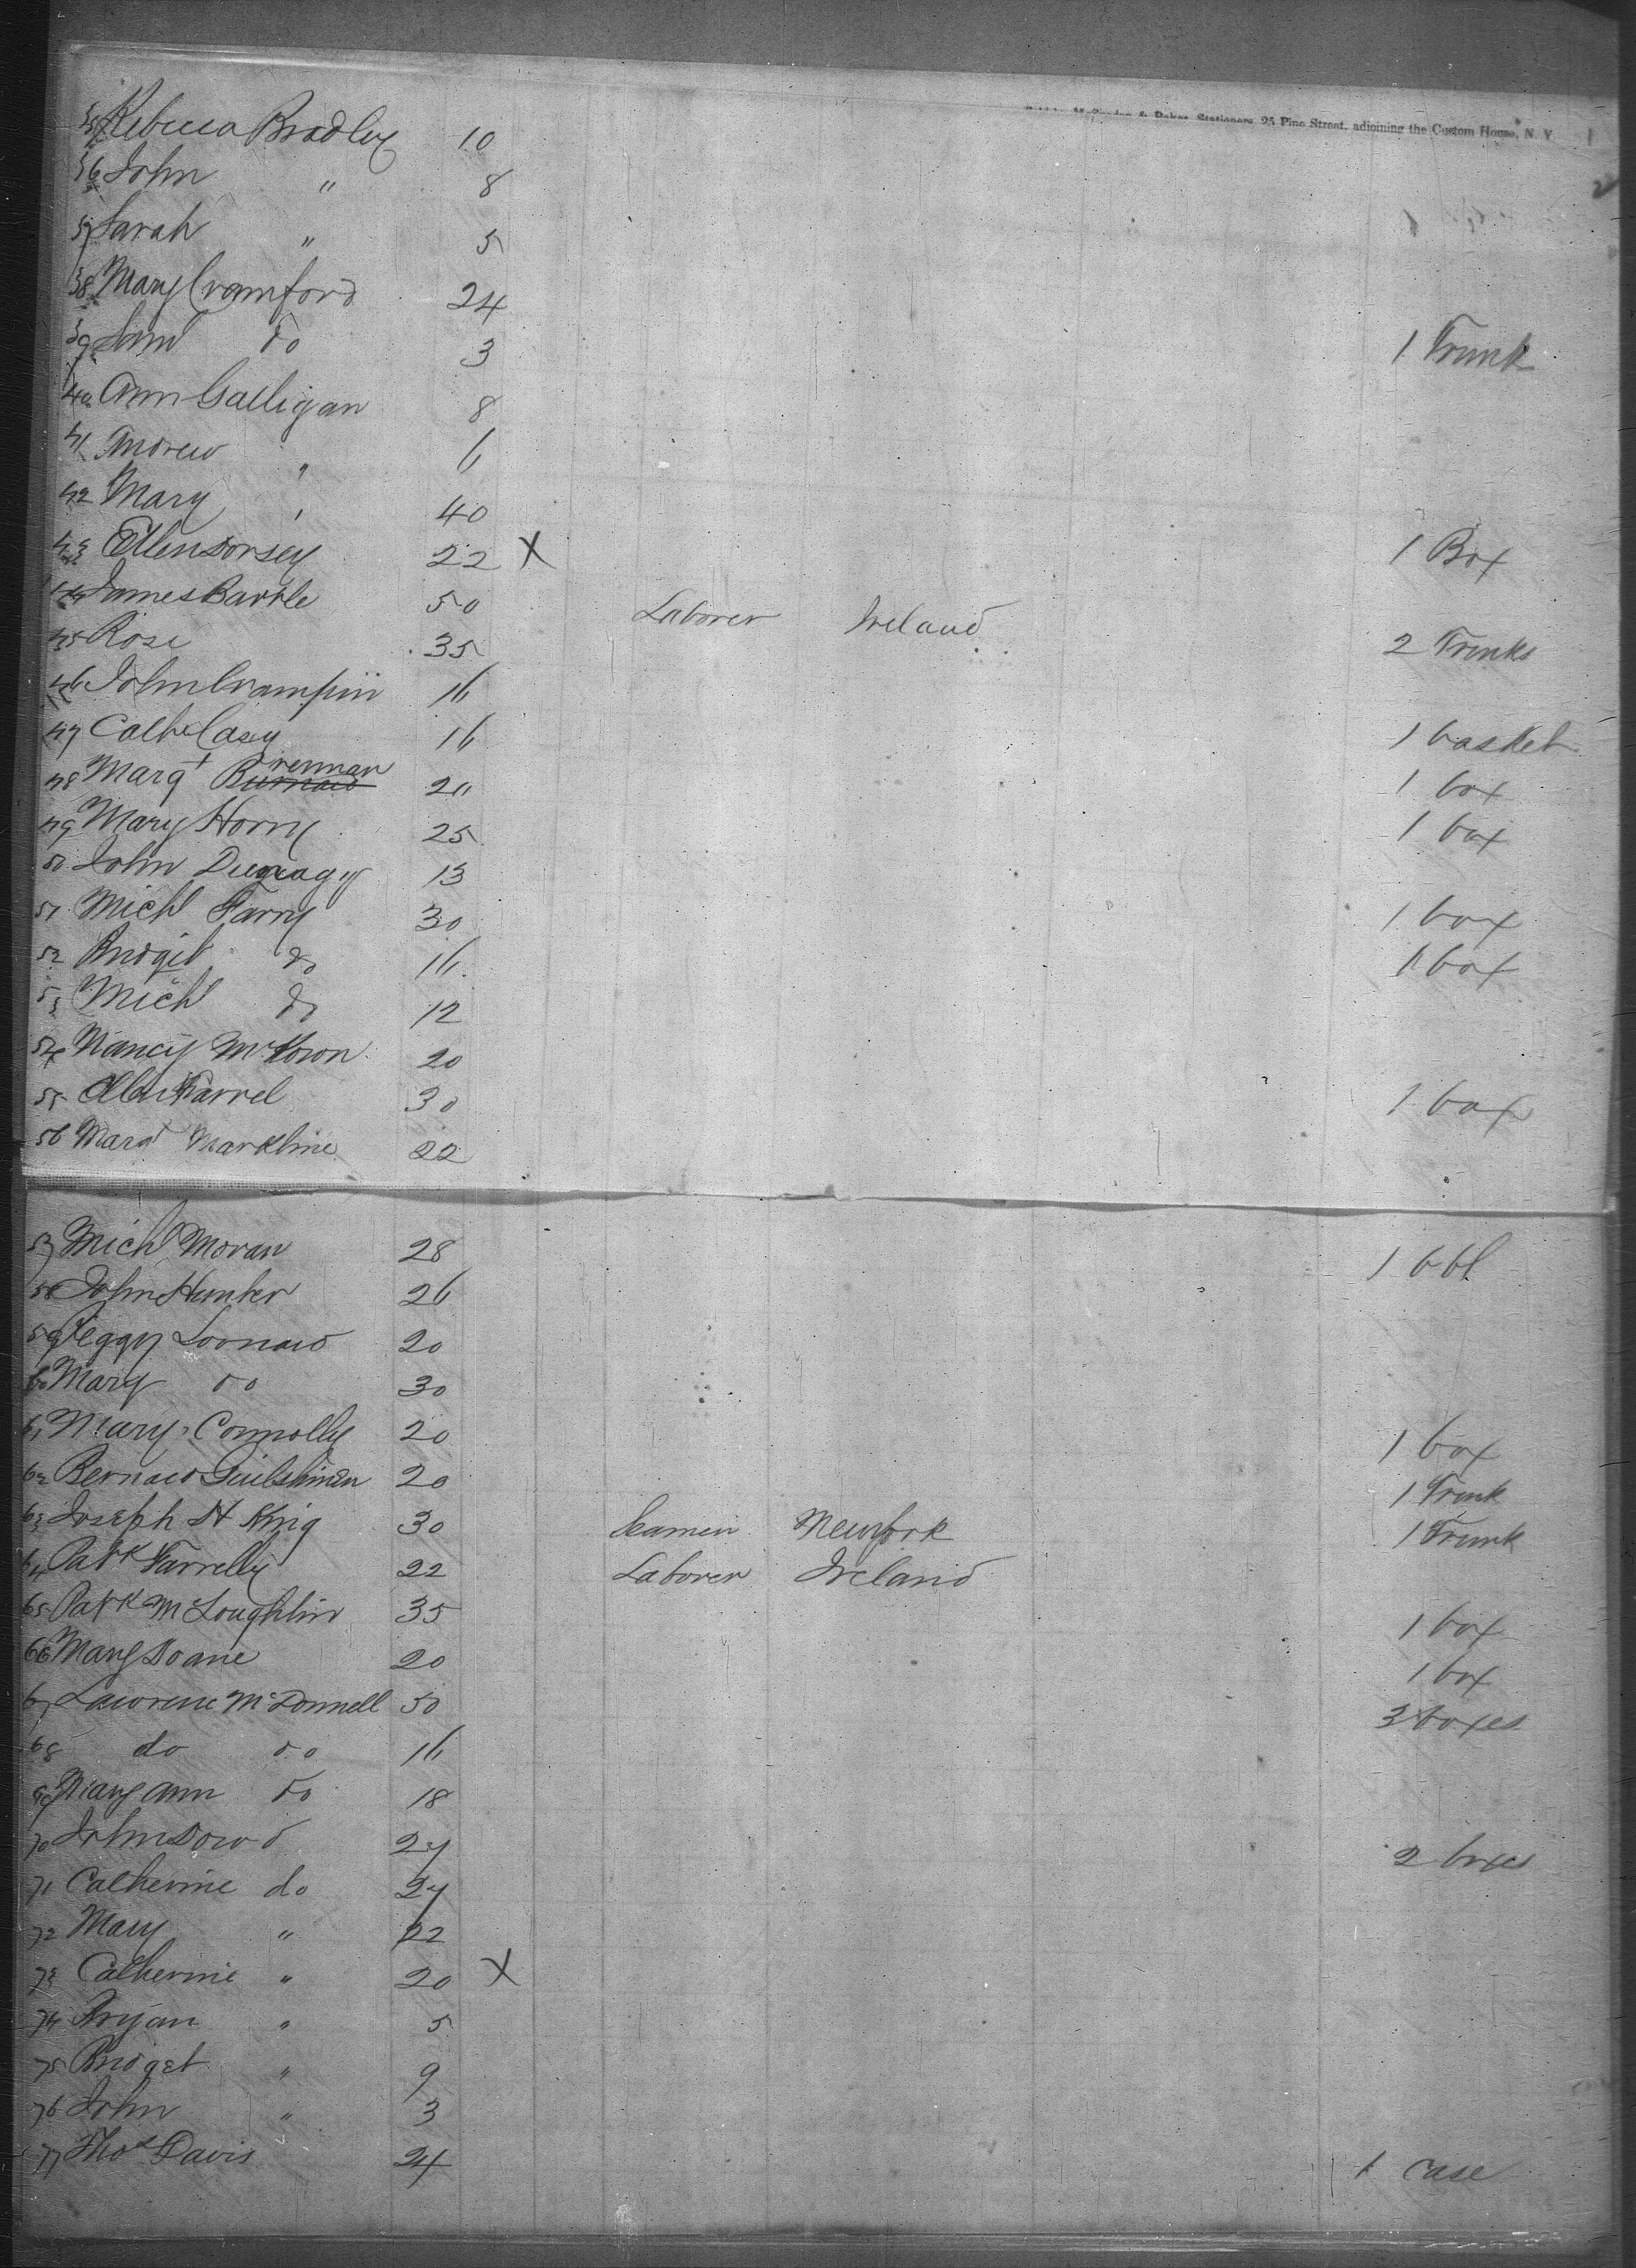 & Baker, Stationers, 25 Pine Street, adjoining the Custom House, N. Y
35 Rebecca Bradley 10
36 John " 8
37 Sarah " 5
38 Mary Crawford 24
39 Saml do 3 1 Trunk
40 Ann Galligan 8
41 Andrew " 6
42 Mary " 40
43 Ellen Dorsey 22 X 1 Box
44 James Bartle 50 Laborer Ireland
45 Rose 35 2 Trunks
46 John Crampin 16
47 Cathe Casey 16 1 basket
48 Margt Brennan 20 1 box
49 Mary Horny 25 1 box
50 John 13
51 Michl Farry 30 1 box
52 Bridgit do 16 1 box
53 Michl do 12
54 Nancy McKown 20
55 Ellen Farrel 30 1 box
56 Margt Markline 22
57 Michl Moran 28 1 bbl
58 John Hunter 26
59 Peggy 20
60 Mary do 30
61 Mary Connolly 20 1 box
62 Bernard 20 1 Trunk
63 Joseph H King 30 Seamen New York 1 Trunk
64 Patk Farrelly 22 Laborer Ireland
65 Patk McLoughlin 35 1 box
66 Mary Doane 20 1 box
67 Lawrence McDonnell 50 3 boxes
68 do do 16
69 Mary Ann do 18
70 John Dowd 27 2 boxes
71 Catherine do 27
72 Mary " 22
73 Catherine " 20 X
74 Bryan " 5
75 Bridget " 9
76 John " 3
77 Thos Davis 24 1 case